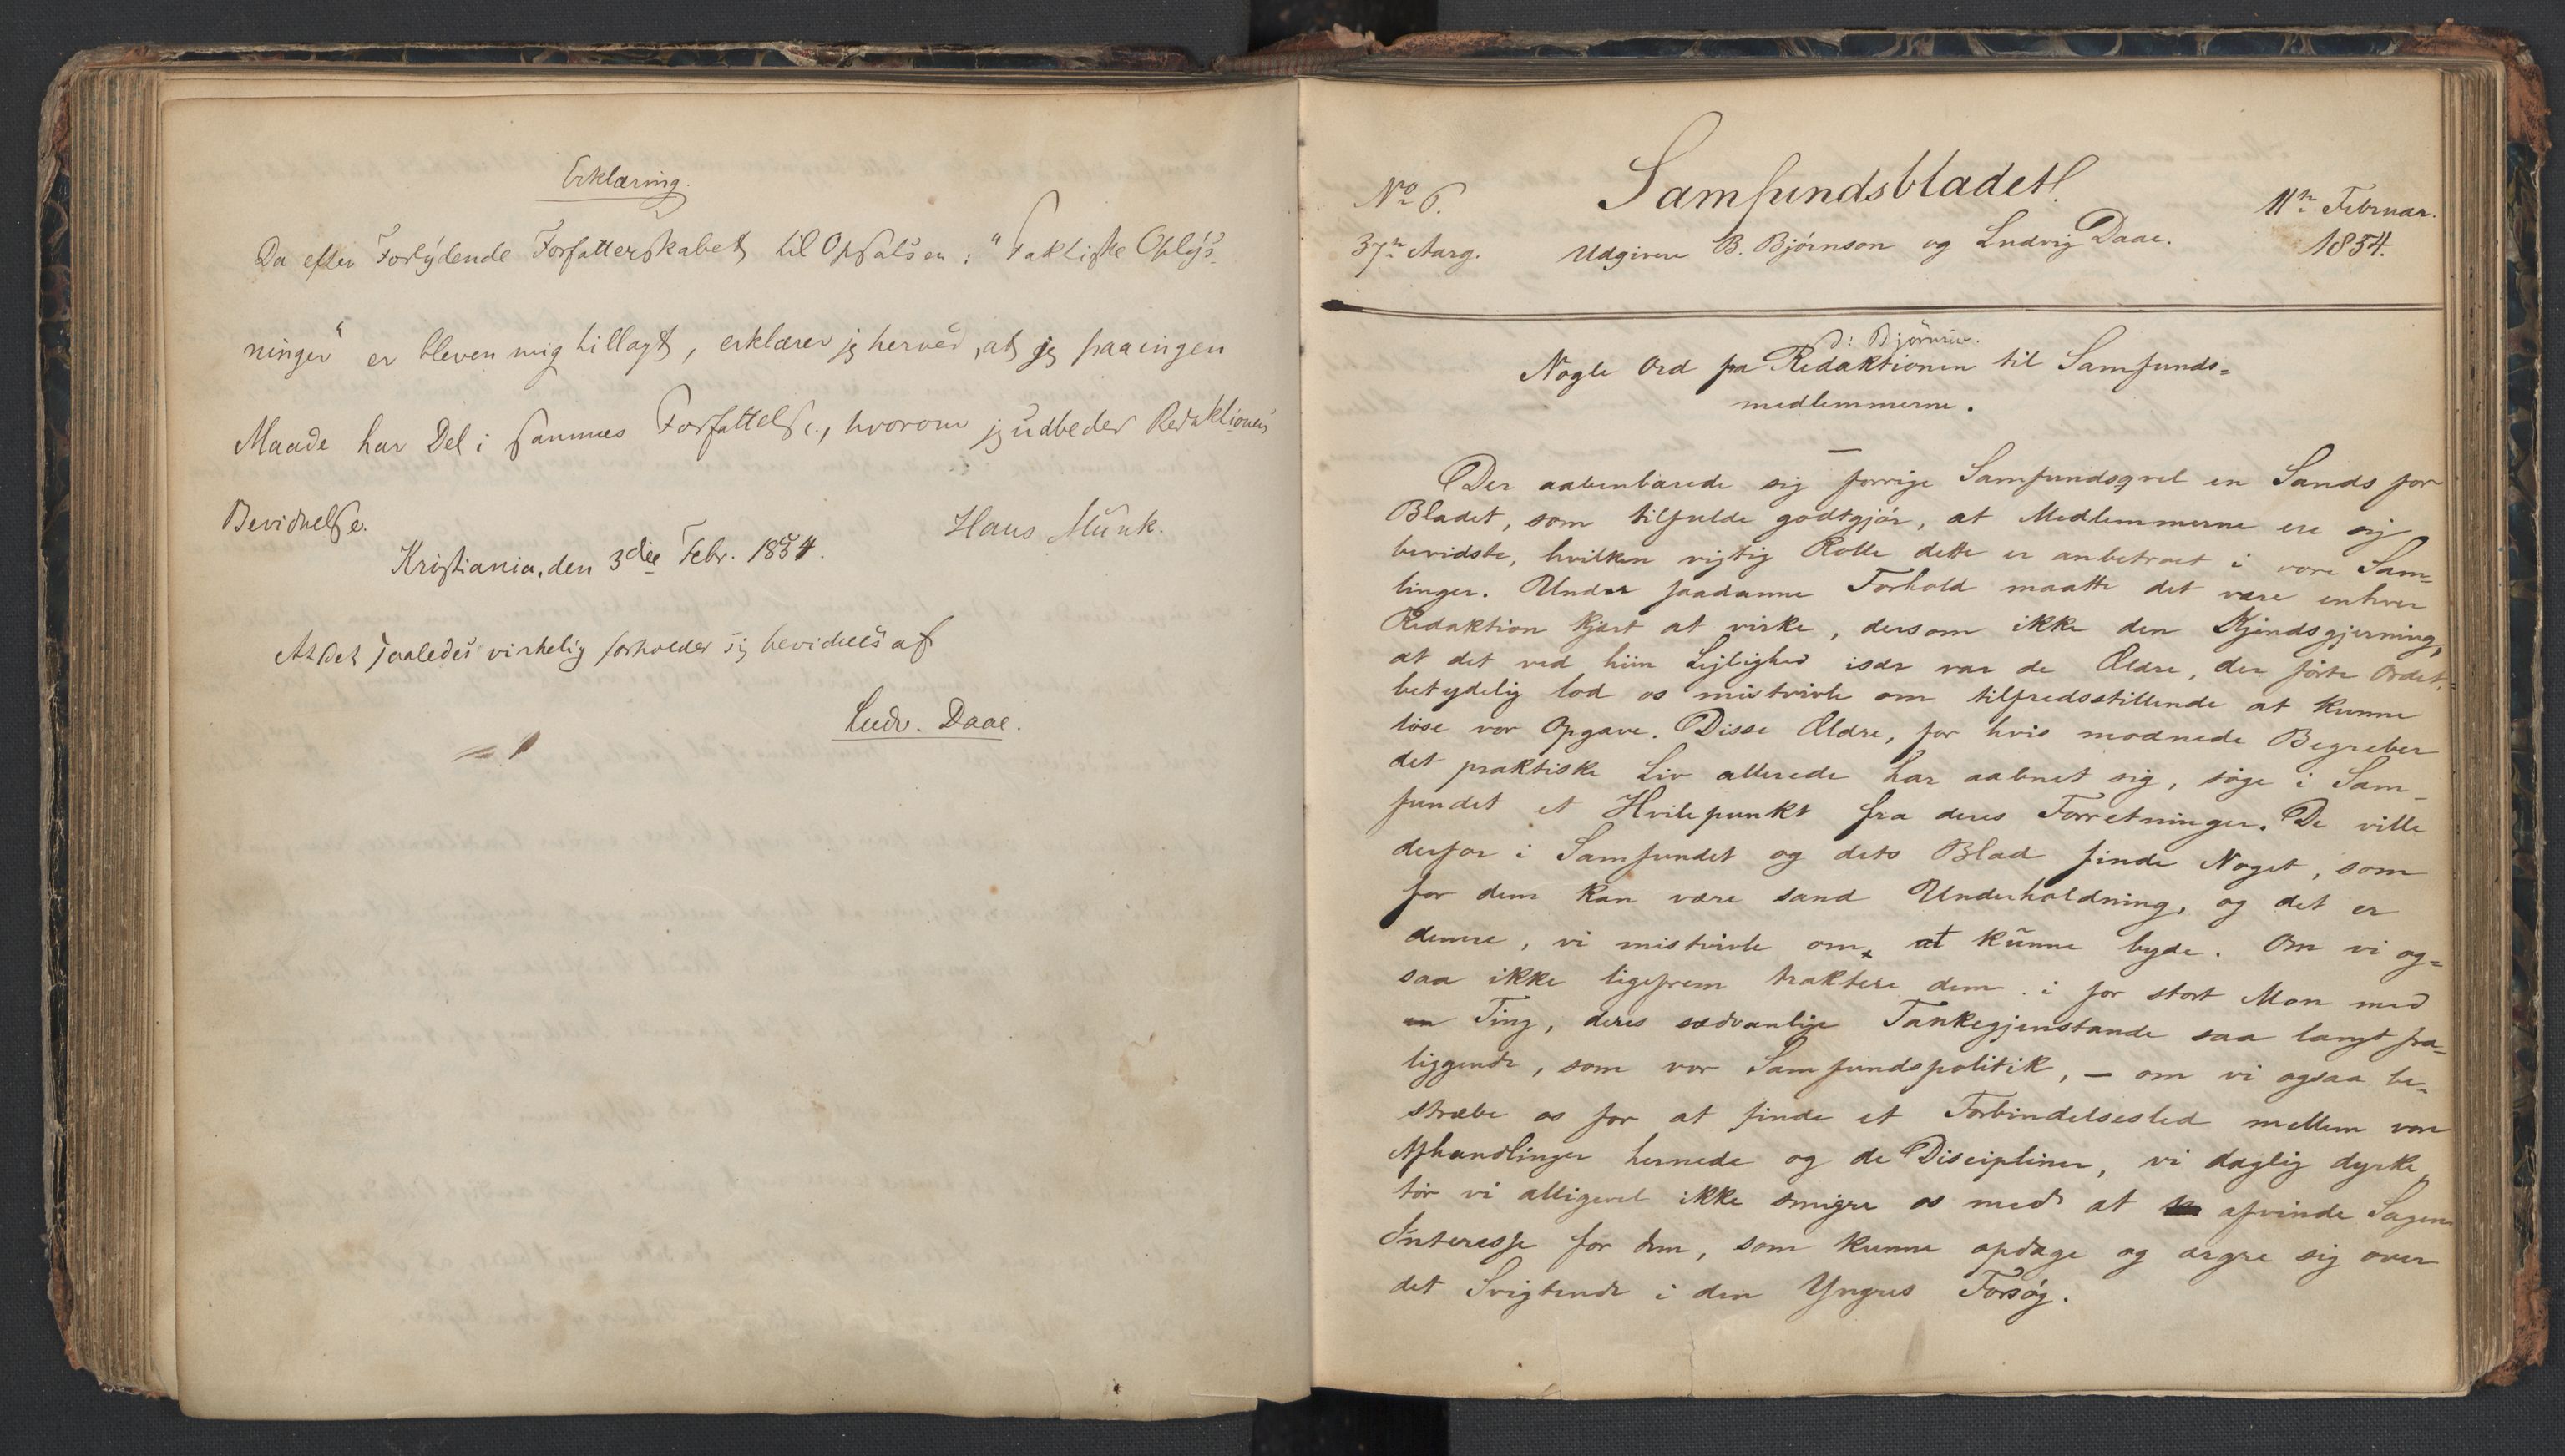 Erklæring.
Da efter Forlydende Forfatterskabet til Opsatsen: "Faktiske Oplys-
ninger" er bleven mig tillagt, erklærer jeg herved, at jeg paa ingen
Maade har Del i sammes Forfattelse, hvorom jeg udbeder Redaktionens
Bevidnelse.
Kristiania, den 3die Febr. 1854.
Hans Munk.
At det saaledes virkelig forholder sig bevidnes af
Ludv. Daae.
No 6.
Samfundsbladet.
11te Februar.
37te Aarg.
Udgivere B. Bjørnson og Ludvig Daae.
1854.
Nogle Ord fra Redaktionen til Samfunds=
medlemmerne.
Der aabenbarede sig forrige Samfundsqvel en Sands for
Bladet, som tilfulde godtgjør, at Medlemmerne ere sig
bevidste, hvilken vigtig Rolle dette er anbetroet i vore Sam-
linger. Under saadanne Forhold maatte det være enhver
Redaktion kjært at virke, dersom ikke den Kjendsgjerning,
at det ved hiin Lejlighed især var de Ældre, der førte Ordet,
betydelig lod os mistvivle om tilfredsstillende at kunne
løse vor Opgave. Disse Ældre, for hvis modnede Begreber
det praktiske Liv allerede har aabnet sig, søge i Sam-
fundet et Hvilepunkt fra deres Forretninger. De ville
derfor i Samfundet og dets Blad finde Noget, som
for dem kan være sand Underholdning, og det er
denne, vi mistvivle om at kunne byde. Om vi og=
saa ikke ligefrem traktere dem i for stort Mon med
Ting, deres sædvanlige Tankegjenstande saa langt fra-
liggende, som vor Samfundspolitik, – om vi ogsaa be-
stræbe os for at finde et Forbindelsesled mellem vore
Afhandlinger hernede og de Discipliner, vi daglig dyrke,
tør vi alligevel ikke smigre os med at afvinde Sagen
Interesse for dem, som kunne opdage og ærgre sig over
det Svigtende i den Yngres Forsøg.